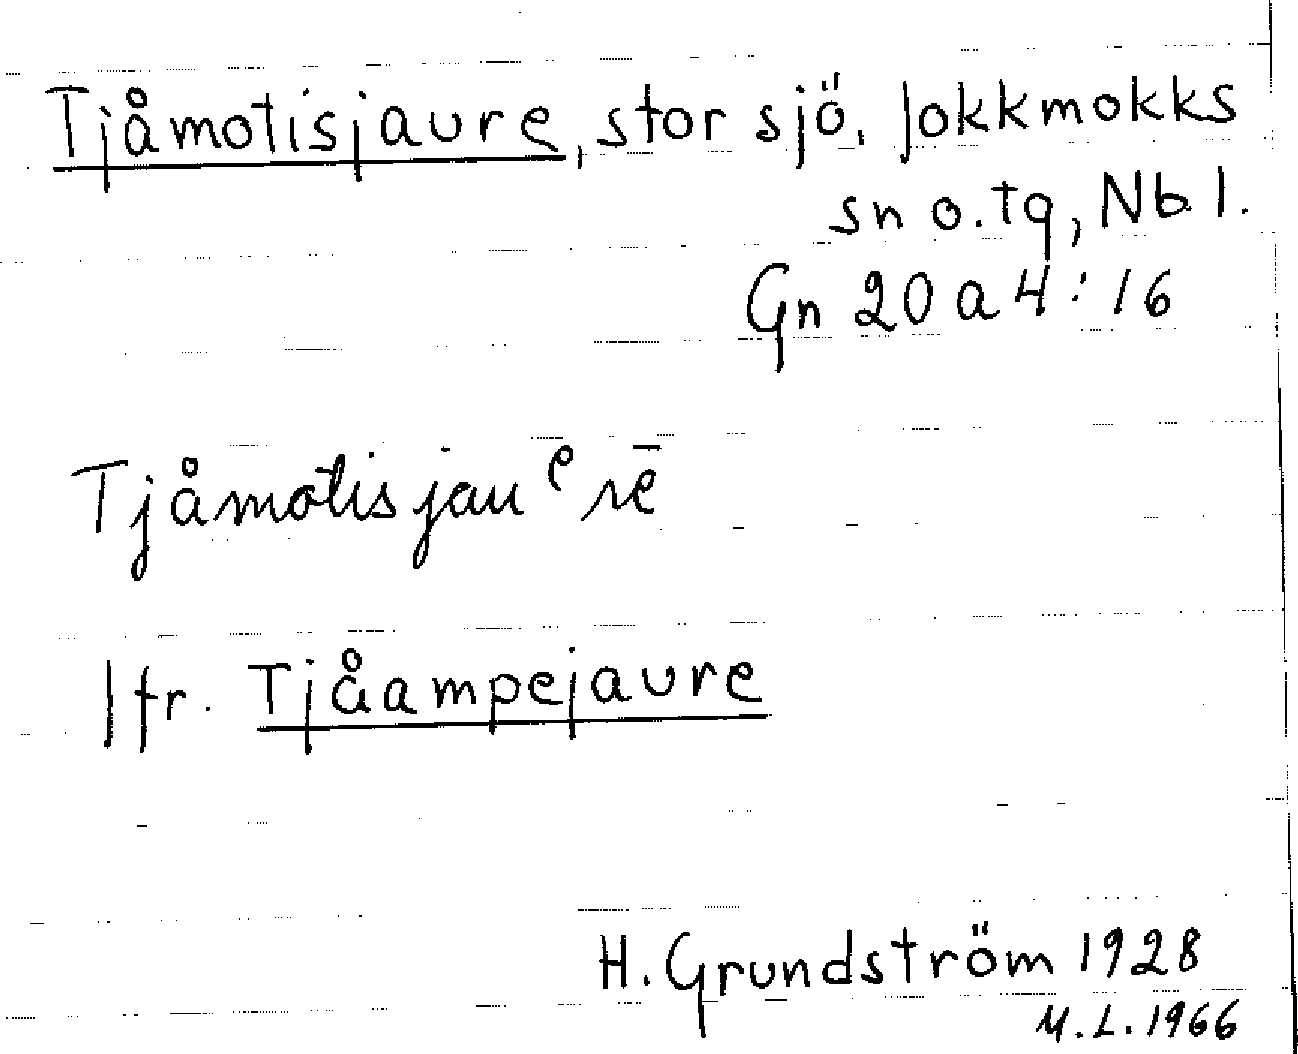 Tjåmotisjaure, stor sjö, Jokkmokks
sn o. tg, Nb l.
Gn 20 a 4:16
Tjåmotisjauᵉrē
Jfr. Tjåampejaure
H. Grundström 1928
M.L. 1966